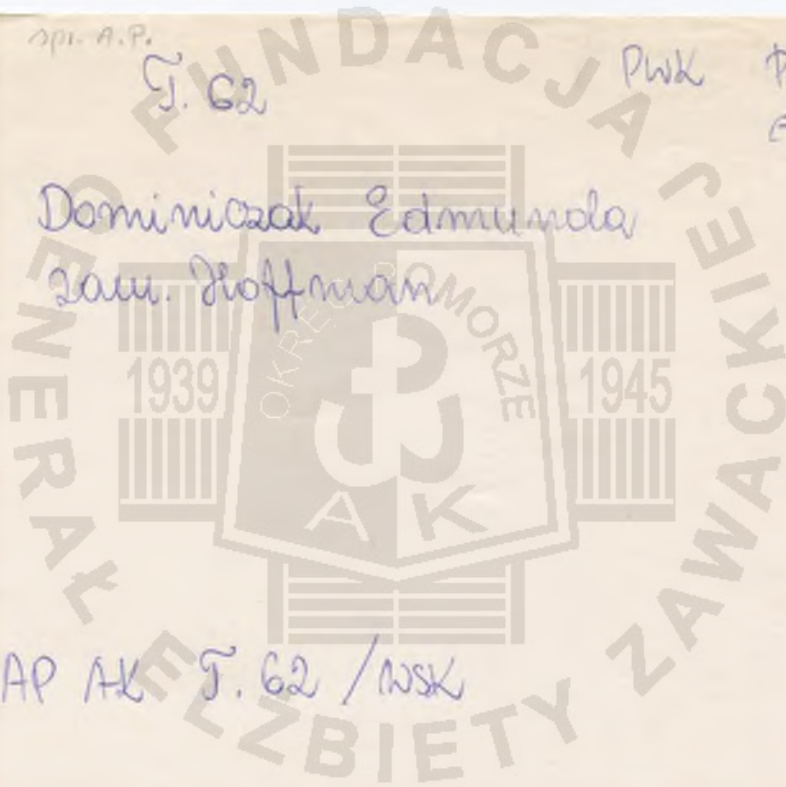 spr. A.P.
T. 62
PWK
Dominiczak Edmunda
zam. Hoffman
AP AK T. 62 /WSK
FUNDACJA GENERAŁ ELŻBIETY ZAWACKIEJ
OKRĘG POMORZE
1939
1945
AK